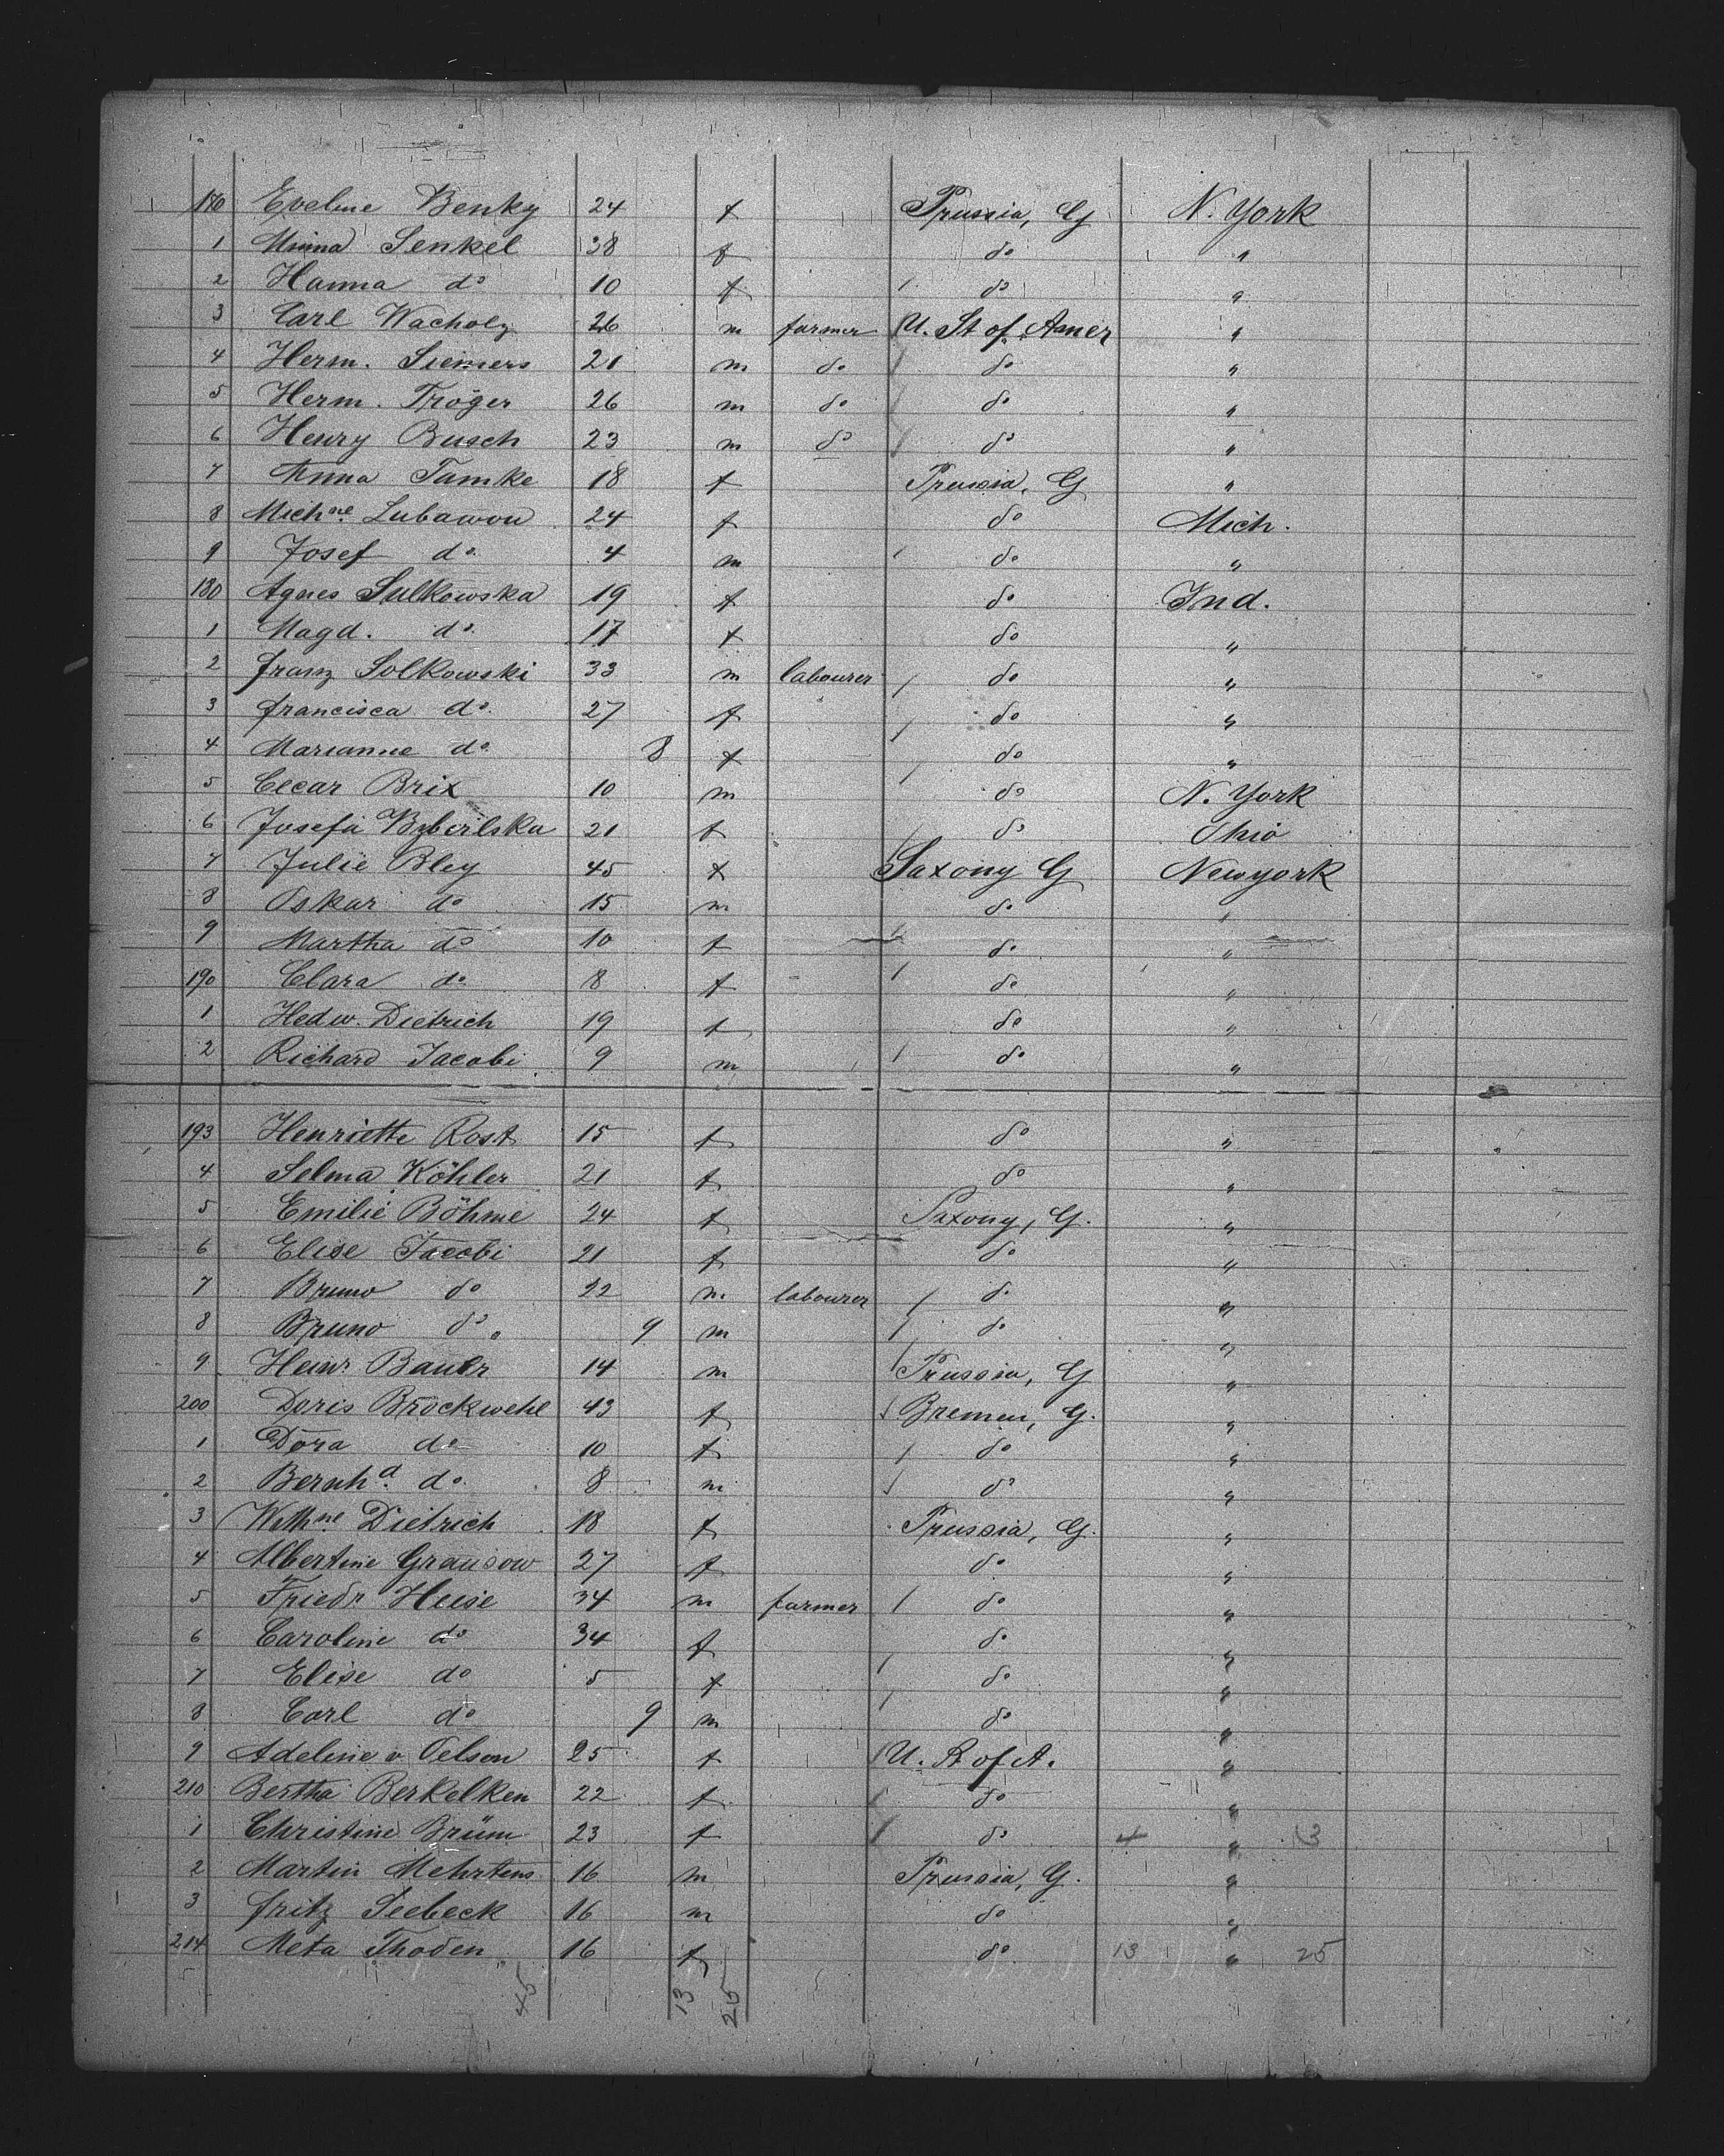 170 Eveline Benky 24 f Prussia, G N. York
1 Minna Senkel 38 f do "
2 Hanna do 10 f do "
3 Carl Wacholz 26 m farmer U. St of Amer "
4 Herm. Siemers 21 m do do "
5 Herm. Tröger 26 m do do "
6 Henry Busch 23 m do do "
7 Anna Tamke 18 f Prussia, G "
8 Michne Lubawou 24 f do Mich.
9 Josef do 4 m do "
180 Agnes Sulkowska 19 f do Ind.
1 Magd. do 17 f do "
2 Franz Solkowski 33 m labourer do "
3 Francisca do 27 f do "
4 Marianne do 8 f do "
5 Brix 10 m do N. York
6 Josefa 21 f do Ohio
7 Julie Bley 45 f Saxony G Newyork
8 Oskar do 15 m do "
9 Martha do 10 f do "
190 Clara do 8 f do "
1 Hedw. Dietrich 19 f do "
2 Richard Jacobi 9 m do "
193 Henriette Rost 15 f do "
4 Selma Köhler 21 f do "
5 Emilie Böhme 24 f Saxony, G. "
6 Elise Jacobi 21 f do "
7 Bruno do 22 m labourer do "
8 Bruno do 9 m do "
9 Heinr. Bauer 14 m Prussia, G "
200 Doris Brockwehl 43 f Bremen, G. "
1 Dora do 10 f do "
2 Bernhd. do 8 m do "
3 Wilhne Dietrich 18 f Prussia, G. "
4 Albertine Grausow 27 f do "
5 Friedr Heise 34 m farmer do "
6 Caroline do 34 f do "
7 Elise do 5 f do "
8 Carl do 9 m do "
9 Adeline v Oelsen 25 f U. St of A. "
210 Bertha Berkelken 22 f do "
1 Christine Brüm 23 f do 4 " 13
2 Martin Mehrtens 16 m Prussia, G. "
3 Fritz Seebeck 16 m do "
214 Meta Thoden 16 f do 13 " 25
45 13 25